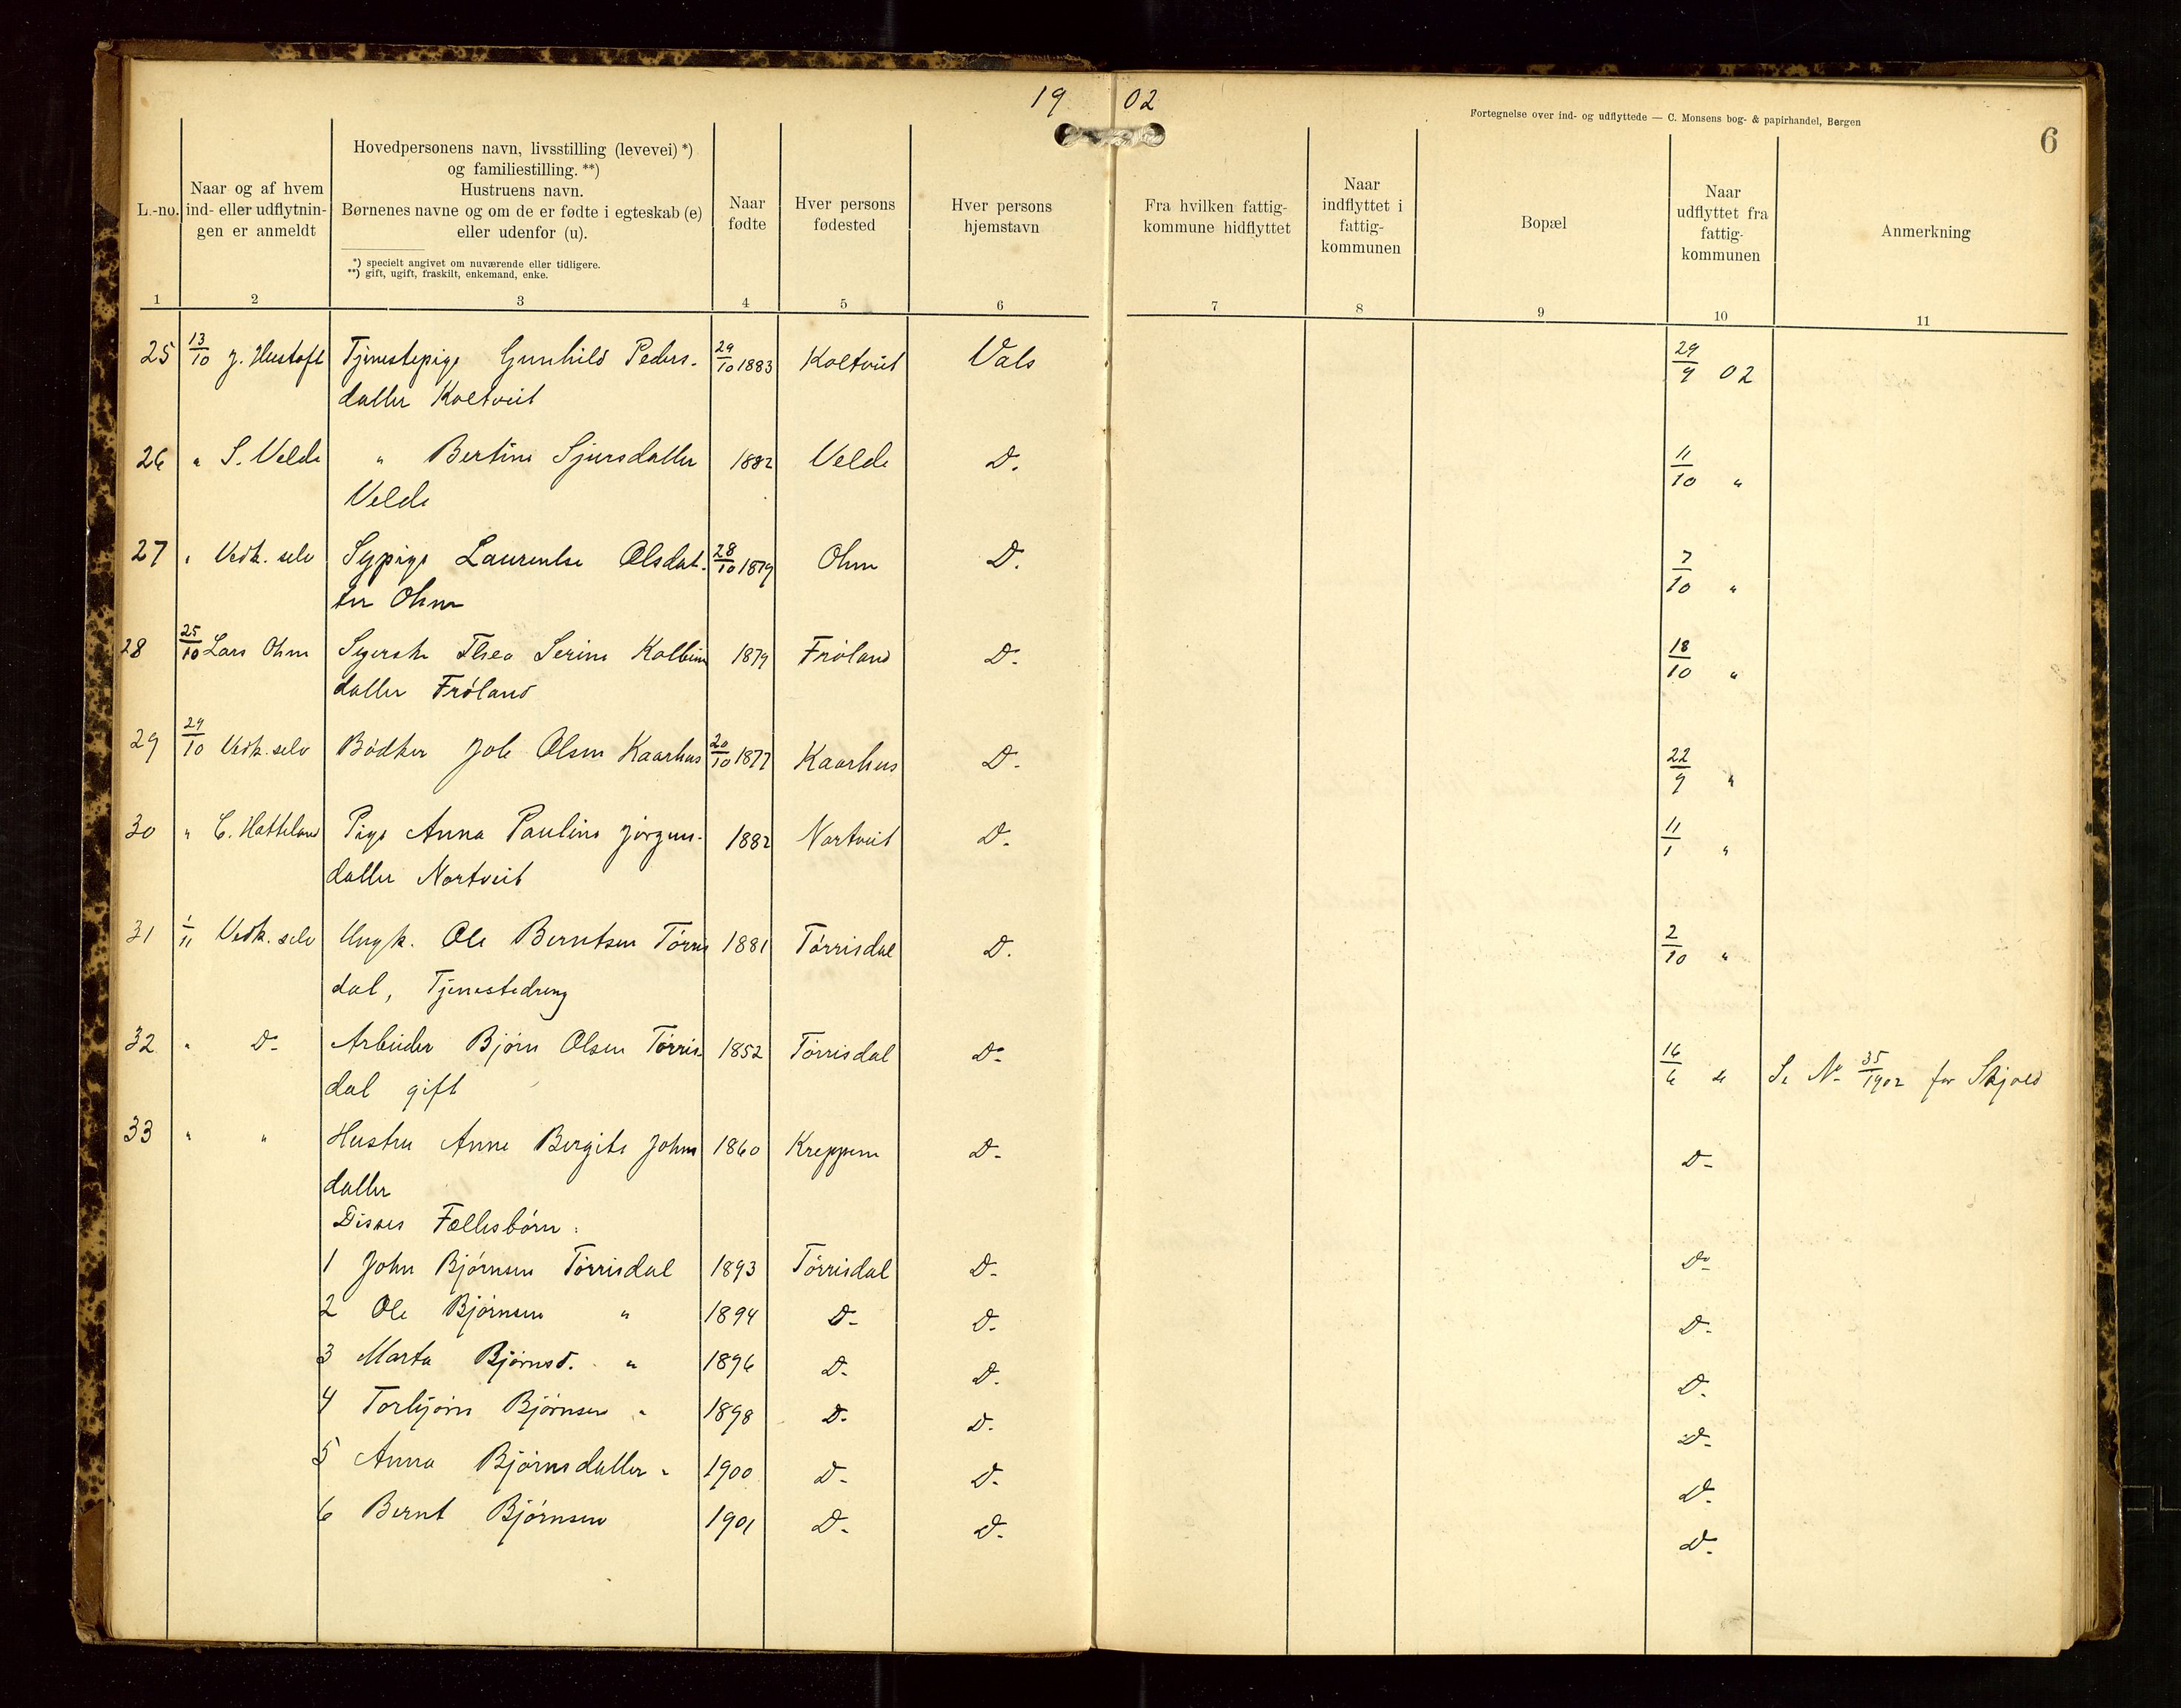 19 02
Fortegnelse over ind- og udflyttede — C. Monsens bog- & papirhandel, Bergen
6
L.-no.
Naar og af hvem ind- eller udflytnin-gen er anmeldt
Hovedpersonens navn, livsstilling (levevei) *)
og familiestilling. **)
Hustruens navn.
Børnenes navne og om de er fødte i egteskab (e)
eller udenfor (u).
*) specielt angivet om nuværende eller tidligere.
**) gift, ugift, fraskilt, enkemand, enke.
Naar fødte
Hver persons fødested
Hver persons hjemstavn
Fra hvilken fattig-kommune hidflyttet
Naar indflyttet i fattig-kommunen
Bopæl
Naar udflyttet fra fattig-kommunen
Anmerkning
1 2 3 4 5 6 7 8 9 10 11
25 13/10 J. Tjenestepige Gunhild Peders- 29/10 1883 Koltveit Vats 29/9 02
datter Koltveit
26 " S. Velde " Bertine Sjursdatter 1882 Velde D. 11/10 "
Velde
27 " Vedk. selv Sypige Laurentse Olsdat- 28/10 1879 Ohm D. 7/10 "
ter Ohm
28 25/10 Lars Ohm Syerske Thea Serine Kolbein 1879 Frøland D. 18/10 "
datter Frøland
29 29/10 Vedk. selv Bødker Jole Olsen Kaarhus 20/10 1877 Kaarhus D. 22/9 "
30 " C. Hatteland Pige Anna Pauline Jørgens- 1882 Nortveit D. 11/1 "
datter Nortveit
31 1/11 Vedk. selv Ungk. Ole Berntsen Tørris 1881 Tørrisdal D. 2/10 "
dal, Tjenestedreng
32 " D- Arbeider Bjørn Olsen Tørris- 1852 Tørrisdal D- 16/6 " Se No 35/1902 for Skjold
dal gift
33 " " Hustru Anne Bergite Johns 1860 Kreppene D- D-
datter
Disses Fællesbørn:
1 John Bjørnsen Tørrisdal 1893 Tørrisdal D- D-
2 Ole Bjørnsen " 1894 D- D- D-
3 Marta Bjørnsd. " 1896 D- D- D-
4 Torbjørn Bjørnsen " 1898 D- D- D-
5 Anna Bjørnsdatter " 1900 D- D- D-
6 Bernt Bjørnsen 1901 D- D- D-